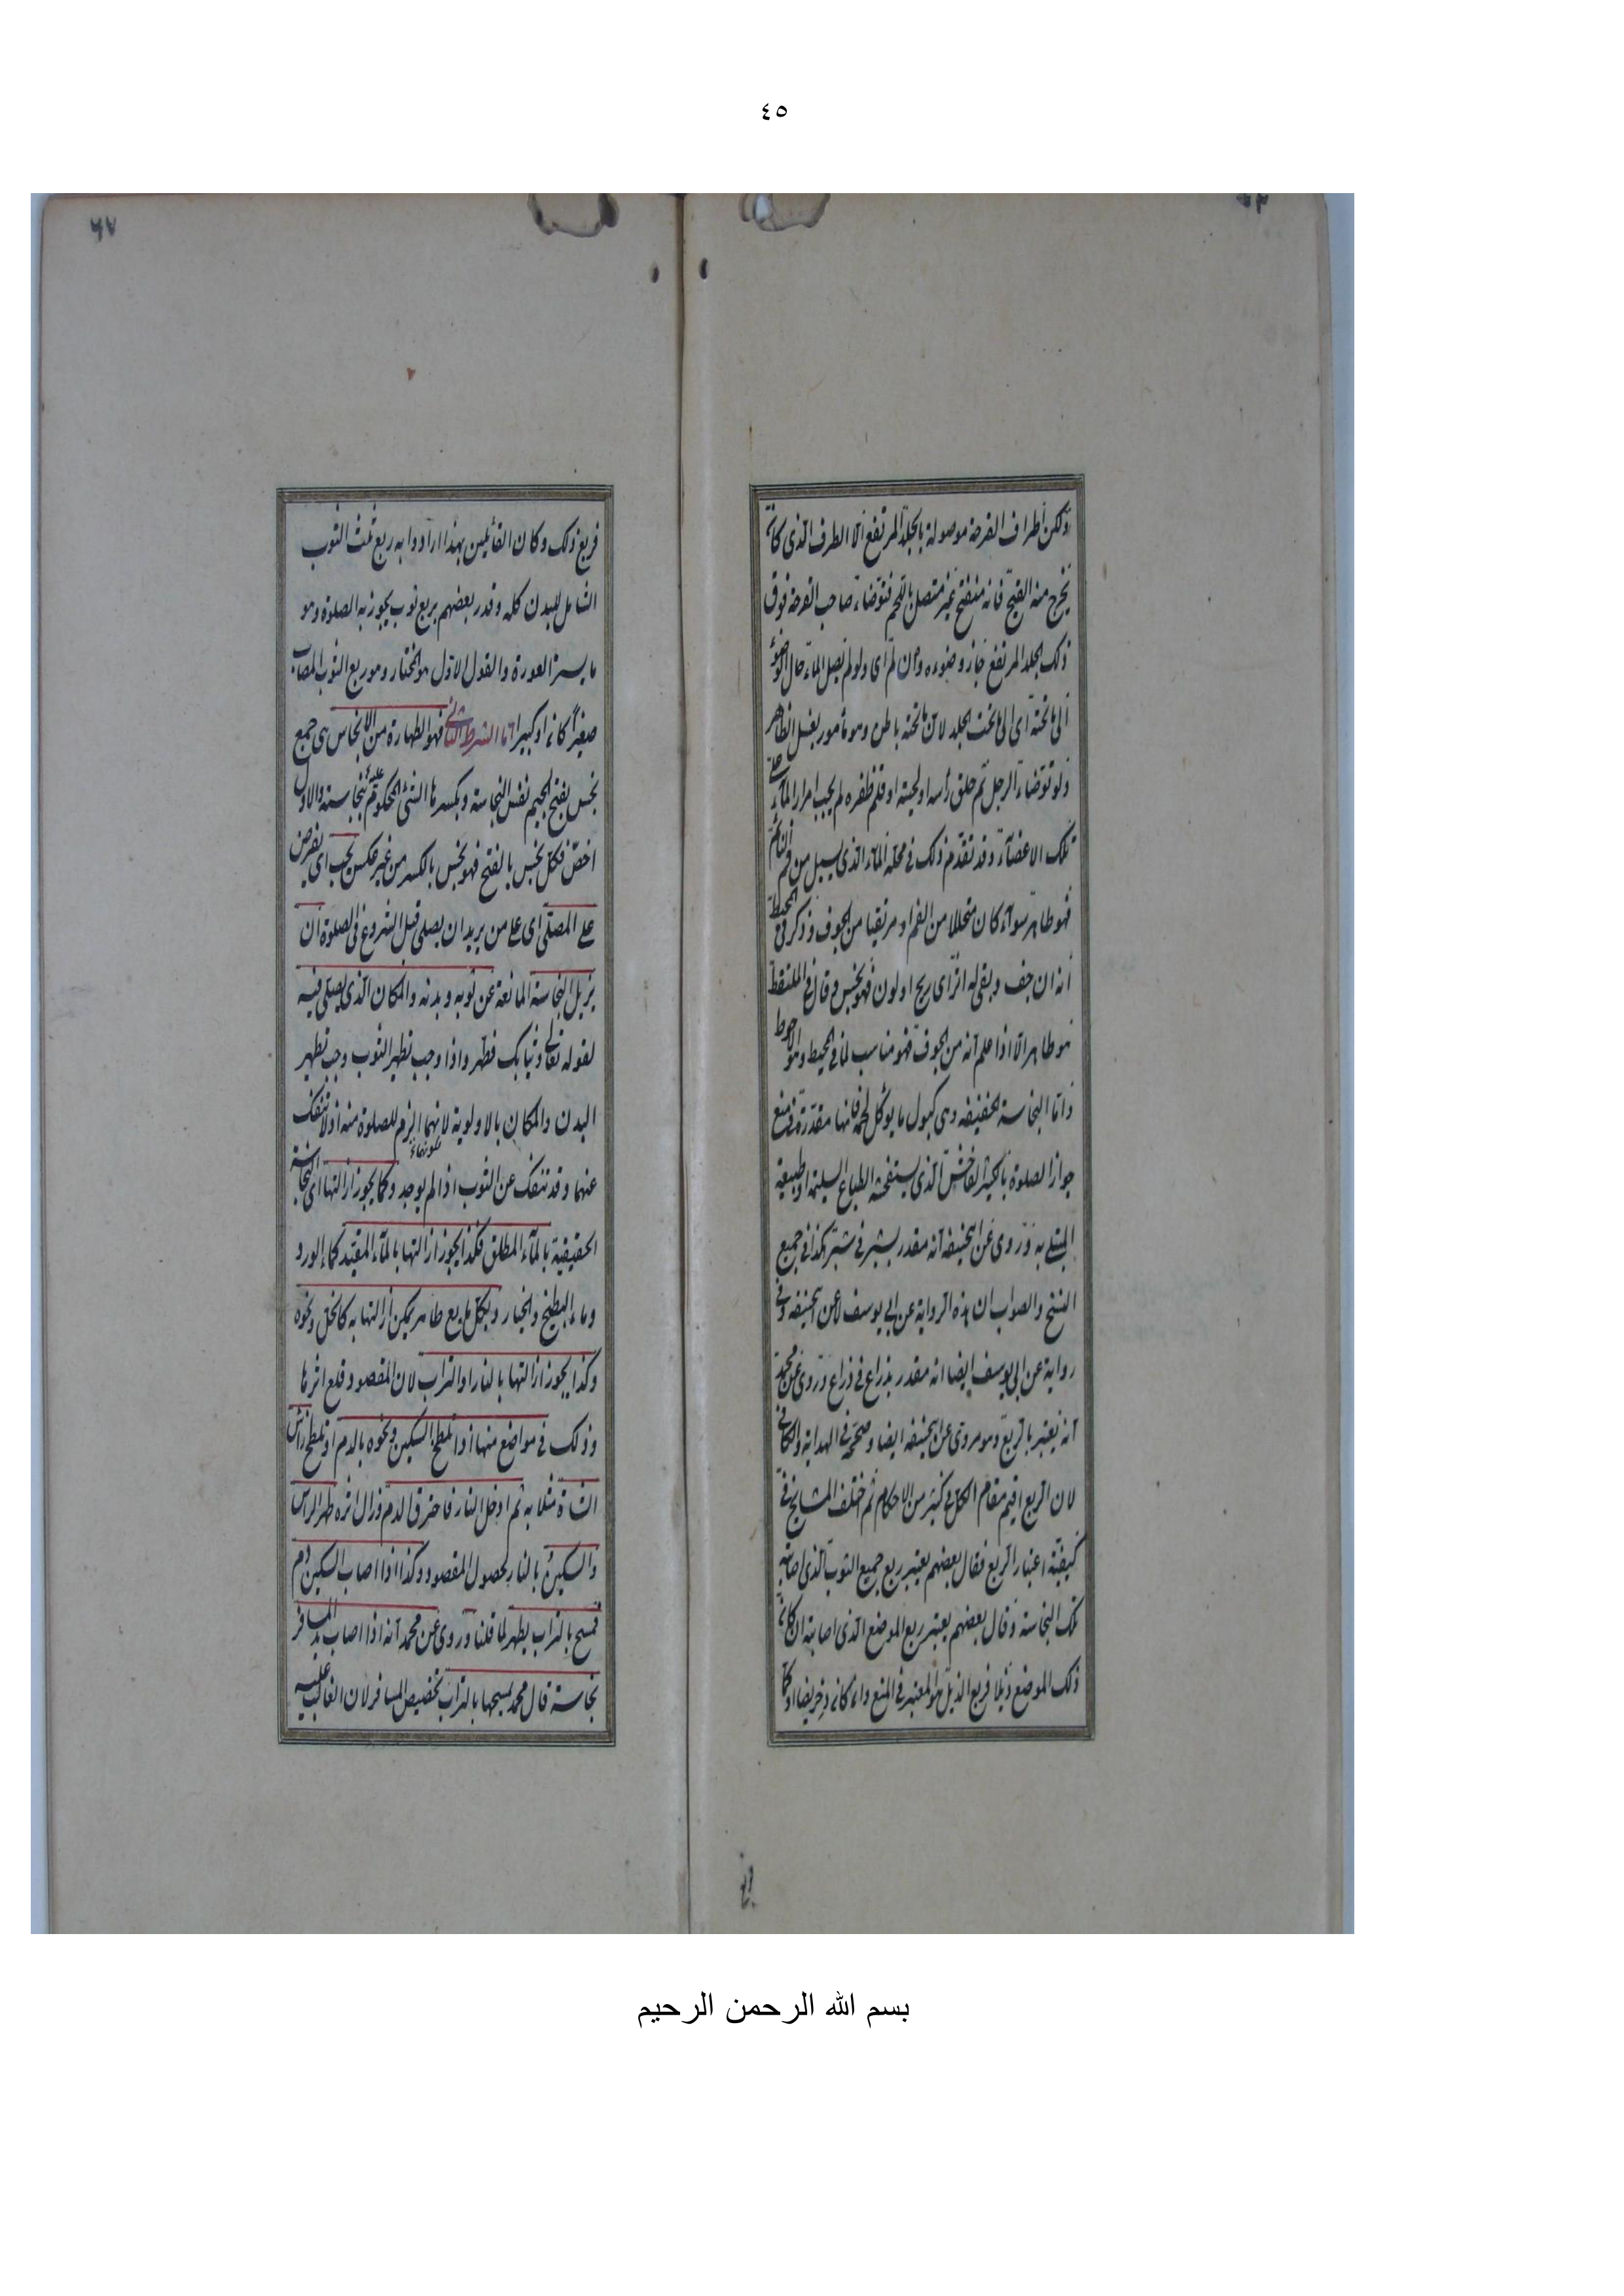 ٤٥
٦٧
ولكن أطراف القرحة موصولة بالجلد المرتفع الا الطرف الذي كان
يخرج منه القيح فانه منفتح غير متصل بالحم فتوضاء صاحب القرحة فوق
ذلك الجلد المرتفع جاز وضوءه وان لم اى ولو لم يصل الماء حال الوضوء
الى ما تحته اى الى ما تحت الجلد لان ما تحته باطن وهو مأمور بغسل الظاهر
ولو توضاء الرجل ثم حلق رأسه او لحيته او قلم ظفره لم يجب امرار الماء على
تلك الاعضاء وقد تقدم ذلك في محله الماء الذى يسيل من فم النائم
فهو طاهر سواء كان متحللا من الفم او مرتقيا من الجوف وذكر في المحيط
انه ان جف وبقى له اثر اى ريح او لون فهو نجس وقال في الملتقط
هو طاهر الا اذا علم انه من الجوف فهو مناسب لما في المحيط وهو الاحوط
واما النجاسة الخفيفة وهى كبول ما يوكل لحمه فانها مقدرة في منع
جواز الصلوة بالكثير الفاحش الذى يستفحشه الطباع السليمة او طبيعة
المبتلى به وروى عن ابيحنيفه انه مقدر بشبر في شبر كذا في جميع
النسخ والصواب ان هذه الرواية عن ابى يوسف لا عن ابيحنيفه وفي
رواية عن ابى يوسف ايضا انه مقدر بذراع في ذراع وروى عن محمد
انه يعتبر بالربع وهو مروى عن ابيحنيفه ايضا وصححه في الهداية والكافي
لان الربع اقيم مقام الكل في كثير من الاحكام ثم اختلف المشايخ في
كيفية اعتبار الربع فقال بعضهم يعتبر ربع جميع الثوب الذى اصابته
تلك النجاسة وقال بعضهم يعتبر ربع الموضع الذى اصابته ان كان
ذلك الموضع ذيلا فربع الذيل هو المعتبر في المنع وان كان دخريصا او كما
فربع ذلك وكان القائلين بهذا ارادوا به ربع ثمث الثوب
الشامل للبدن كله وقدر بعضهم بربع ثوب يجوز به الصلوة وهو
ما يستر العورة والقول الاول هو المختار وهو ربع الثوب المصاب
صغيرا كان او كبيرا اما الشرط الثانى فهو الطهارة من الانجاس هى جميع
نجس بفتح الجيم نفس النجاسة وبكسرها الشئ المحكوم عليه بنجاسته والاول
اخص فكل نجس بالفتح فهو نجس بالكسر من غير عكس يجب اى يفرض
على المصلى اى على من يريد ان يصلى قبل الشروع في الصلوة ان
يزيل النجاسة المانعة عن ثوبه وبدنه والمكان الذى يصلى فيه
لقوله تعالى وثيابك فطهر واذا وجب تطهير الثوب وجب تطهير
البدن والمكان بالاولوية لانهما الزم للصلوة منه اذ لا تنفك
عنهما وقد تنفك عن الثوب اذا لم يوجد وكما يجوز ازالتها اى النجاسة
الحقيقية بالماء المطلق فكذا يجوز ازالتها بالماء المقيد كماء الورد
وماء البطيخ والخيار وبكل مايع طاهر يمكن ازالتها به كالخل ونحوه
وكذا يجوز ازالتها بالنار او التراب لان المقصود قلع اثرها
وذلك في مواضع منها اذا تلطخ السكين ونحوه بالدم او تلطخ رأس
الشاة مثلا به ثم ادخل النار فاحترق الدم وزال اثره طهر الرأس
والسكين بالنار لحصول المقصود وكذا اذا اصاب السكين دم
فمسح بالتراب يطهر لما قلنا وروى عن محمد انه اذا اصاب يد المسافر
نجاسة قال محمد يمسحها بالتراب تخصيص المسافر لان الغالب عليه
بسم الله الرحمن الرحيم